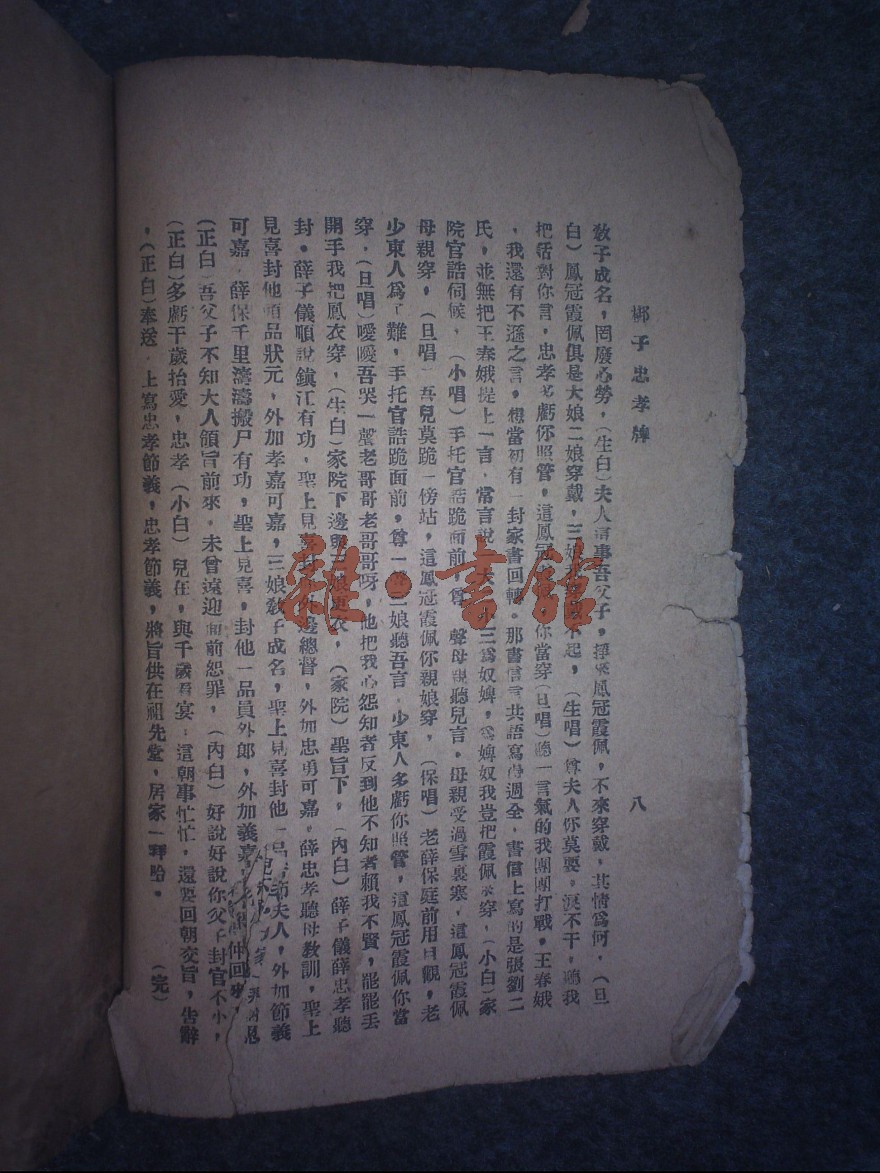 梆子忠孝牌
八
教子成名，罔廢心勞，（生白）夫人這事吾父子，掙來鳳冠霞佩，不來穿戴，其情爲何，（旦
白）鳳冠霞佩俱是大娘二娘穿戴，三娘不起，（生唱）尊夫人你莫要淚不干，聽我
把話對你言，忠孝多虧你照管，這鳳冠霞佩你當穿（旦唱）聽一言氣的我團團打戰，王春娥
，我還有不遜之言，想當初有一封家書回轉。那書信言共語寫得週全，書信上寫的是張劉二
氏，並無把王春娥提上一言，常言說三爲奴婢，爲婢奴我豈把霞佩來穿，（小白）家
院官誥伺候，（小唱）手托官誥跪面前，尊聲母親聽兒言，母親受過雪裏寒，這鳳冠霞佩
母親穿，（旦唱）吾兒莫跪一傍站，這鳳冠霞佩你親娘穿，（保唱）老薛保庭前用目觀，老
少東人爲了難，手托官誥跪面前，尊一聲三娘聽吾言，少東人多虧你照管，這鳳冠霞佩你當
穿，（旦唱）噯噯吾哭一聲老哥哥老哥哥呀，他把我心怨知者反到他不知者賴我不賢，罷罷丟
開手我把鳳衣穿，（生白）家院下邊與三娘更衣，（家院）聖旨下，（內白）薛子儀薛忠孝聽
封。薛子儀順說鎮江有功，聖上見喜封外邊總督，外加忠勇可嘉，薛忠孝聽母教訓，聖上
見喜封他頭品狀元，外加孝嘉可嘉，三娘教子成名，聖上見喜封他一品夫人，外加節義
可嘉，薛保千里濤濤搬尸有功，聖上見喜，封他一品員外郎，外加義嘉，回來，謝恩
（正白）吾父子不知大人領旨前來，未曾遠迎面前恕罪，（內白）好說好說你父子封官不小，
（正白）多虧千歲抬愛，忠孝（小白）兒在，與千歲看宴，這朝事忙忙，還要回朝交旨，告辭
，（正白）奉送，上寫忠孝節義，忠孝節義，將旨供在祖先堂，居家一拜哈。（完）
雜·書館